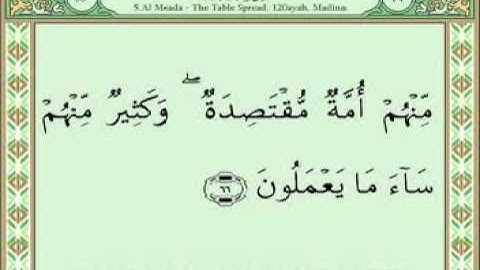 5.Al Meada - The Table Spread. 120ayah. Madina
مِّنْهُمْ أُمَّةٌ مُّقْتَصِدَةٌ ۖ وَكَثِيرٌ مِّنْهُمْ
سَآءَ مَا يَعْمَلُونَ ﴿٦٦﴾